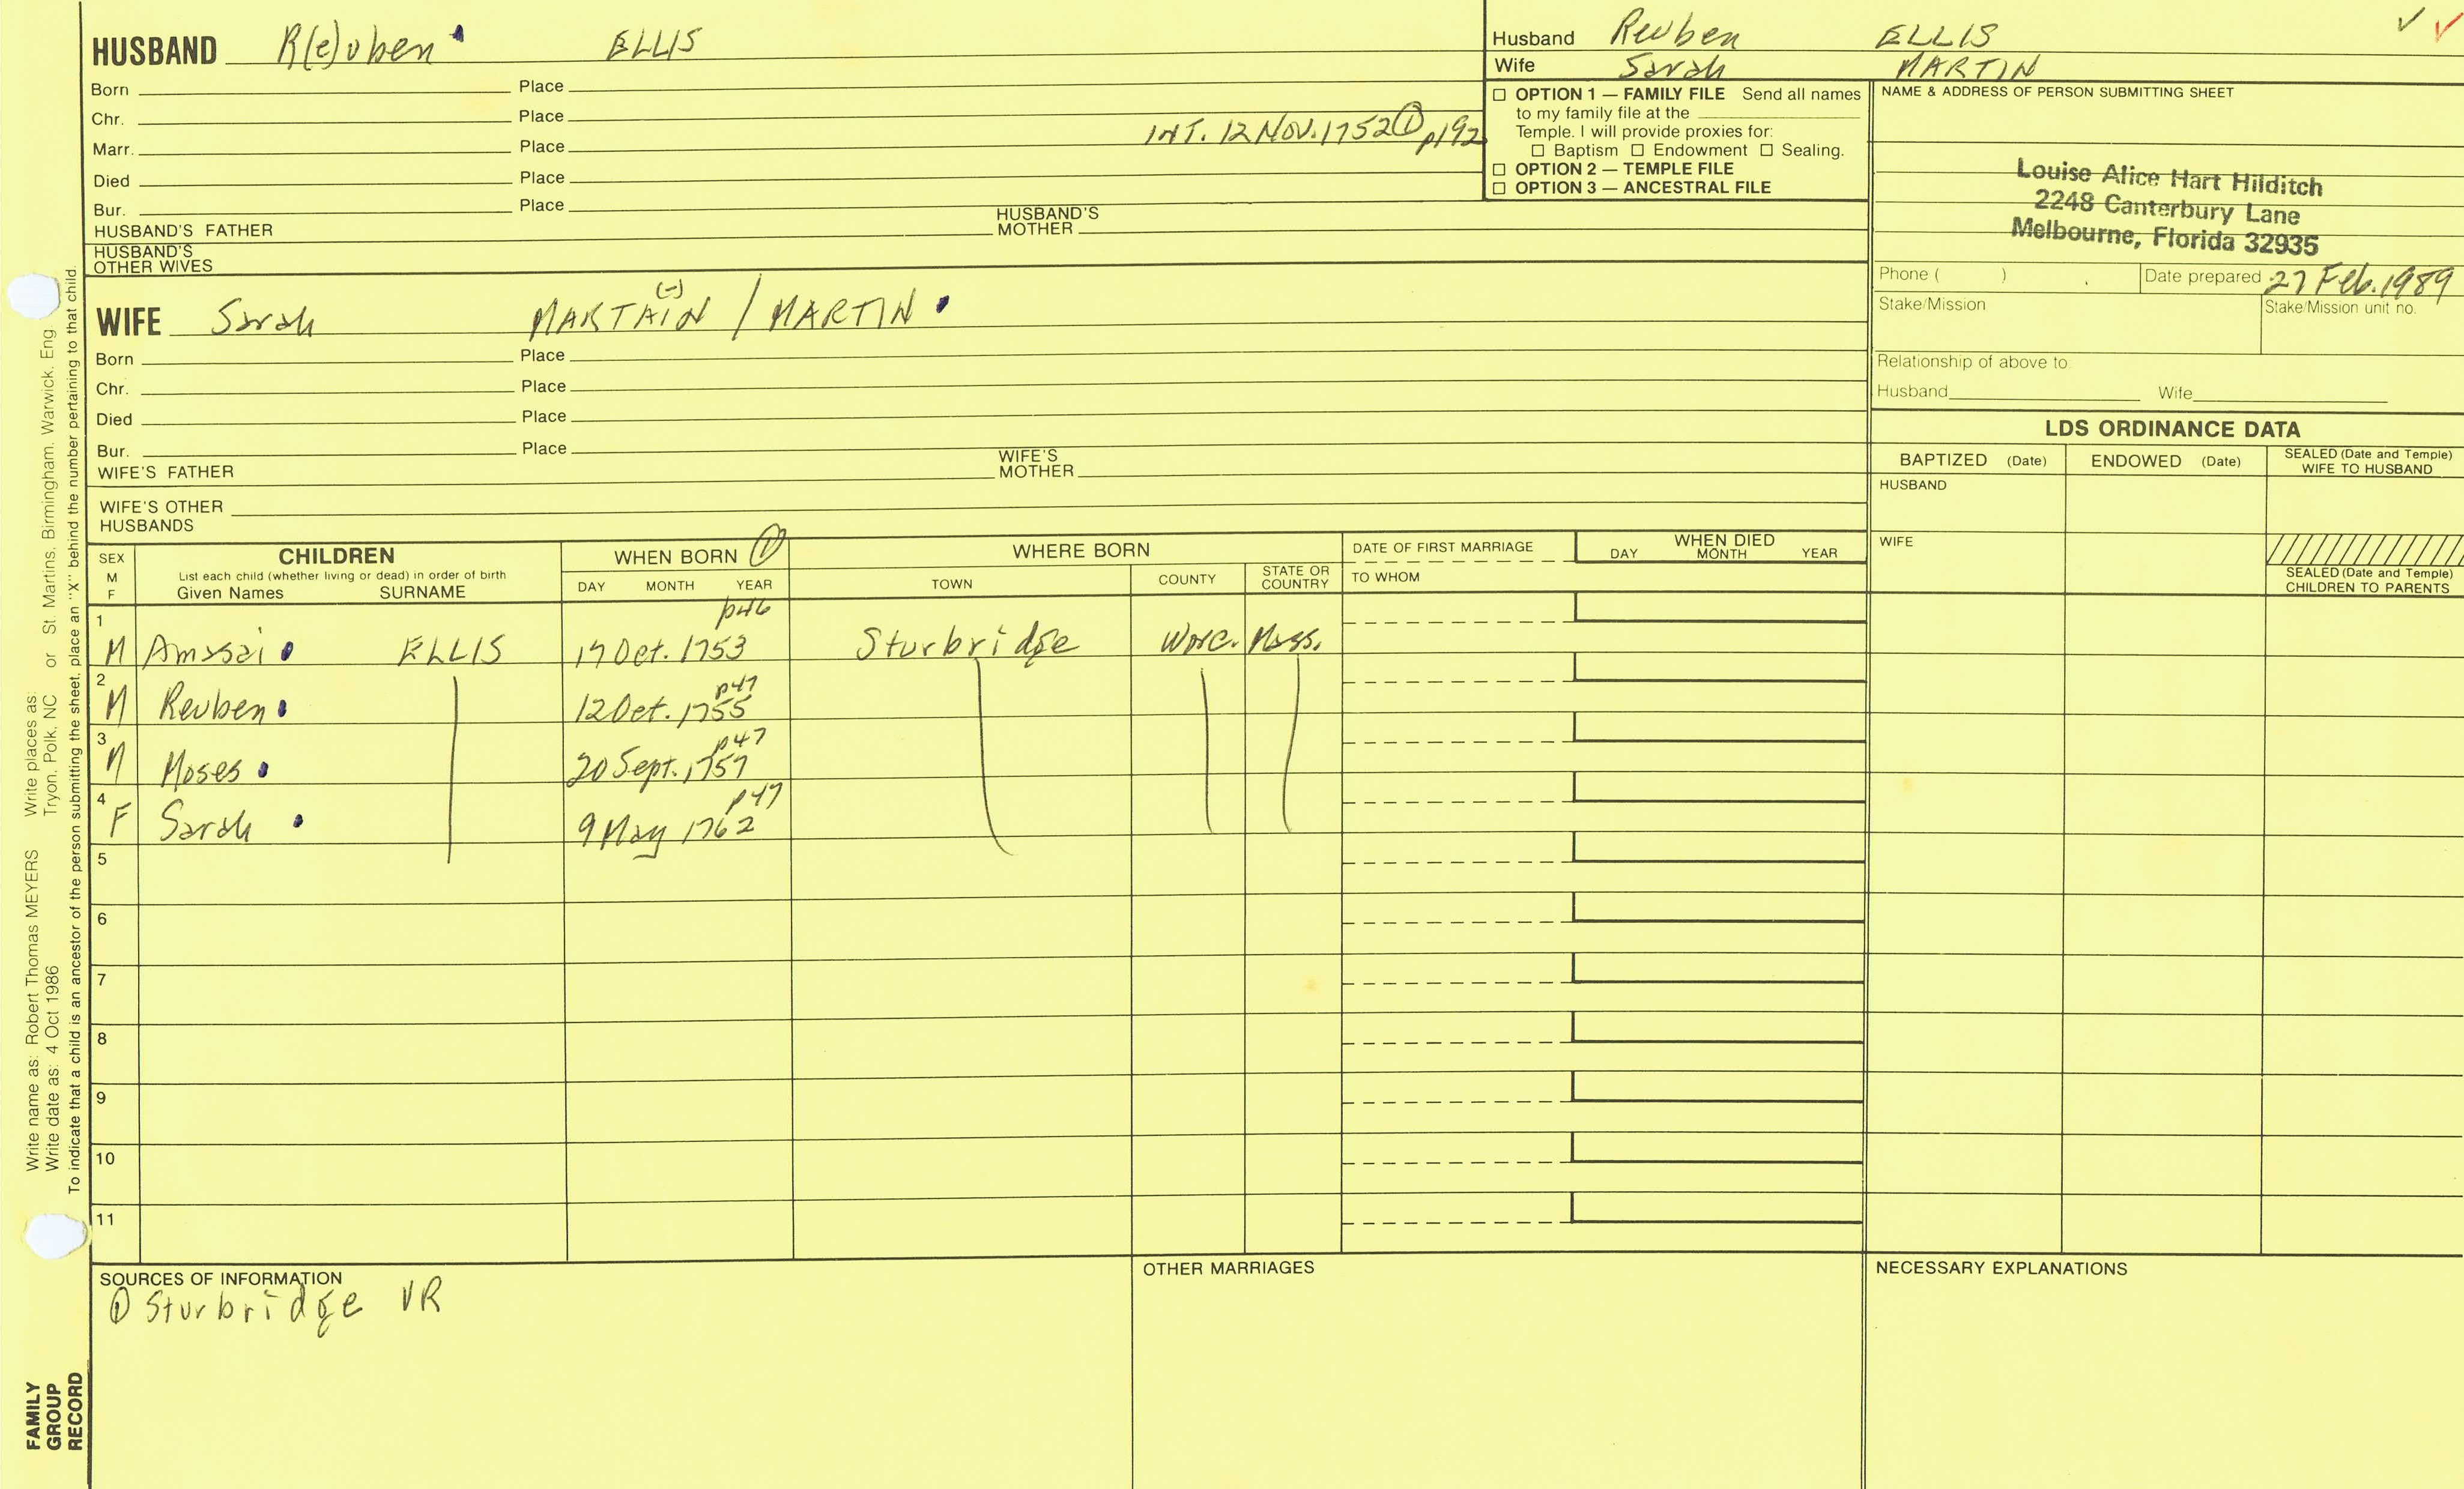 HUSBAND R(e)uben ELLIS
Born Place
Chr. Place
Marr. Place INT. 12 Nov. 1752 ① p192
Died Place
Bur. Place
HUSBAND'S FATHER HUSBAND'S MOTHER
HUSBAND'S OTHER WIVES
Husband Reuben ELLIS ✓ ✓
Wife Sarah MARTIN
☐ OPTION 1 — FAMILY FILE Send all names
to my family file at the
Temple. I will provide proxies for:
☐ Baptism ☐ Endowment ☐ Sealing.
☐ OPTION 2 — TEMPLE FILE
☐ OPTION 3 — ANCESTRAL FILE
NAME & ADDRESS OF PERSON SUBMITTING SHEET
Louise Alice Hart Hilditch
2248 Canterbury Lane
Melbourne, Florida 32935
Phone ( ) Date prepared 27 Feb. 1989
Stake/Mission Stake/Mission unit no.
Relationship of above to
Husband Wife
WIFE Sarah MARTAIN (-) / MARTIN
Born Place
Chr. Place
Died Place
Bur. Place
WIFE'S FATHER WIFE'S MOTHER
WIFE'S OTHER HUSBANDS
LDS ORDINANCE DATA
BAPTIZED (Date) ENDOWED (Date) SEALED (Date and Temple) WIFE TO HUSBAND
HUSBAND
WIFE
SEALED (Date and Temple) CHILDREN TO PARENTS
SEX M F
CHILDREN
List each child (whether living or dead) in order of birth
Given Names SURNAME
WHEN BORN ①
DAY MONTH YEAR
WHERE BORN
TOWN COUNTY STATE OR COUNTRY
DATE OF FIRST MARRIAGE
TO WHOM
WHEN DIED
DAY MONTH YEAR
p46
1 M Amasai ELLIS 17 Oct. 1753 Sturbridge Worc. Mass.
p47
2 M Reuben 12 Oct. 1755
p47
3 M Moses 20 Sept. 1757
p47
4 F Sarah 9 May 1762
5
6
7
8
9
10
11
SOURCES OF INFORMATION
① Sturbridge VR
OTHER MARRIAGES
NECESSARY EXPLANATIONS
Write name as: Robert Thomas MEYERS Write places as: or St. Martins, Birmingham, Warwick, Eng
Write date as: 4 Oct 1986 Tryon, Polk, NC
To indicate that a child is an ancestor of the person submitting the sheet, place an "X" behind the number pertaining to that child.
FAMILY
GROUP
RECORD